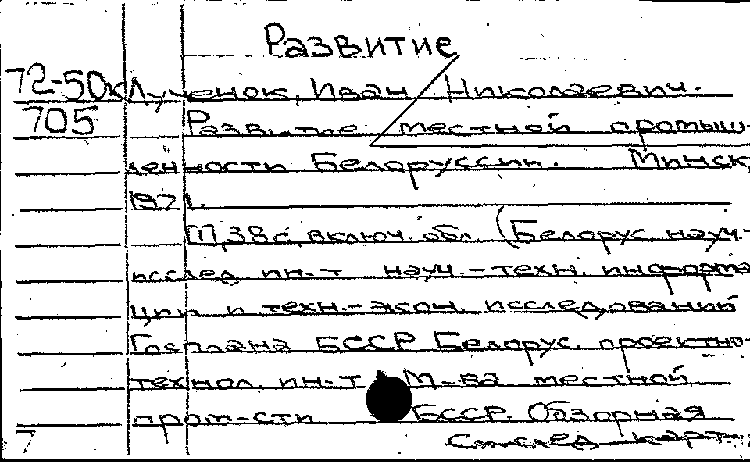 Развитие
72-50к Лученок, Иван Николаевич.
705 Развитие местной промыш-
ленности Белоруссии. Минск,
1971.
38с. включ. обл. (Белорус. науч.-
исслед. ин-т науч.-техн. информа-
ции и техн.-экон. исследований
Госплана БССР. Белорус. проектно-
технол. ин-т М-ва местной
пром-сти БССР. Обзорная
См. след. карт.
7